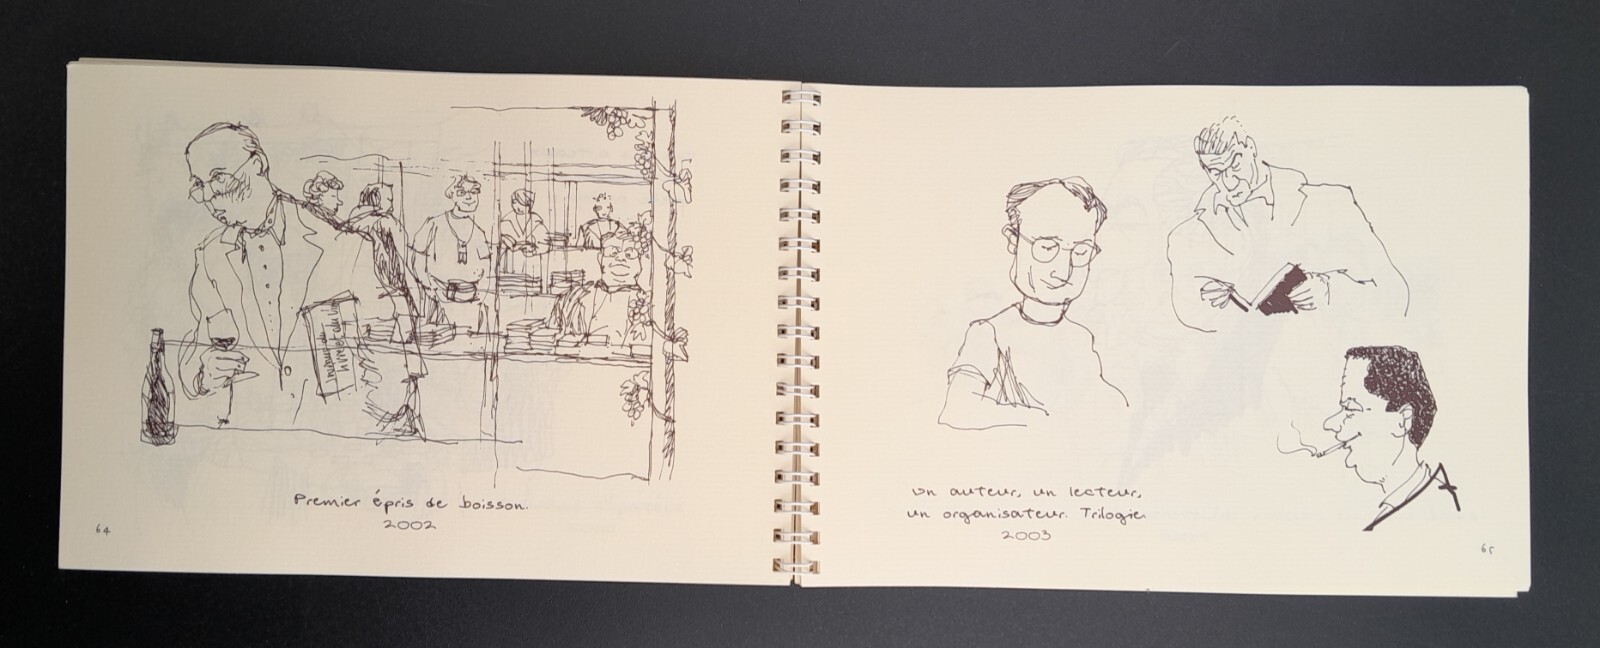 Premier épris de boisson.
2002
64
un auteur, un lecteur,
un organisateur. Trilogie.
2003
65